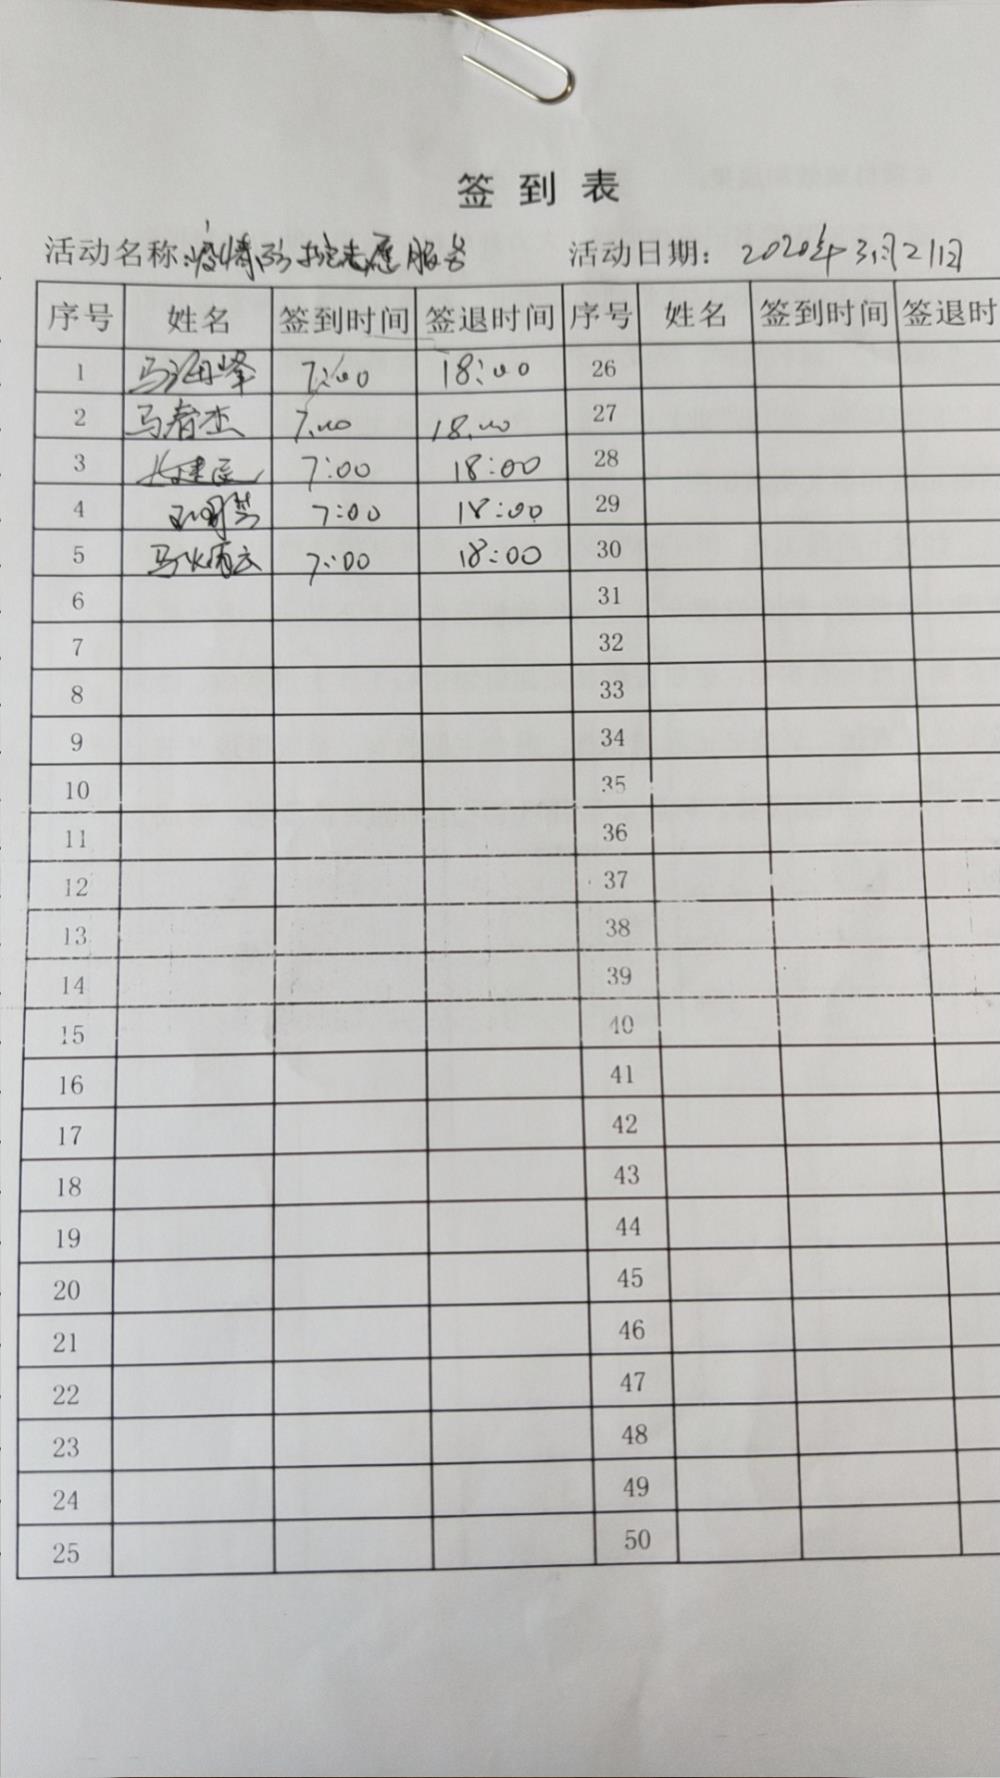 签到表
活动名称:疫情防控志愿服务 活动日期: 2020年3月21日
序号 姓名 签到时间 签退时间 序号 姓名 签到时间 签退时
1 马海峰 7:00 18:00 26
2 马春杰 7:00 18:00 27
3 7:00 18:00 28
4 7:00 18:00 29
5 7:00 18:00 30
6 31
7 32
8 33
9 34
10 35
11 36
12 37
13 38
14 39
15 40
16 41
17 42
18 43
19 44
20 45
21 46
22 47
23 48
24 49
25 50